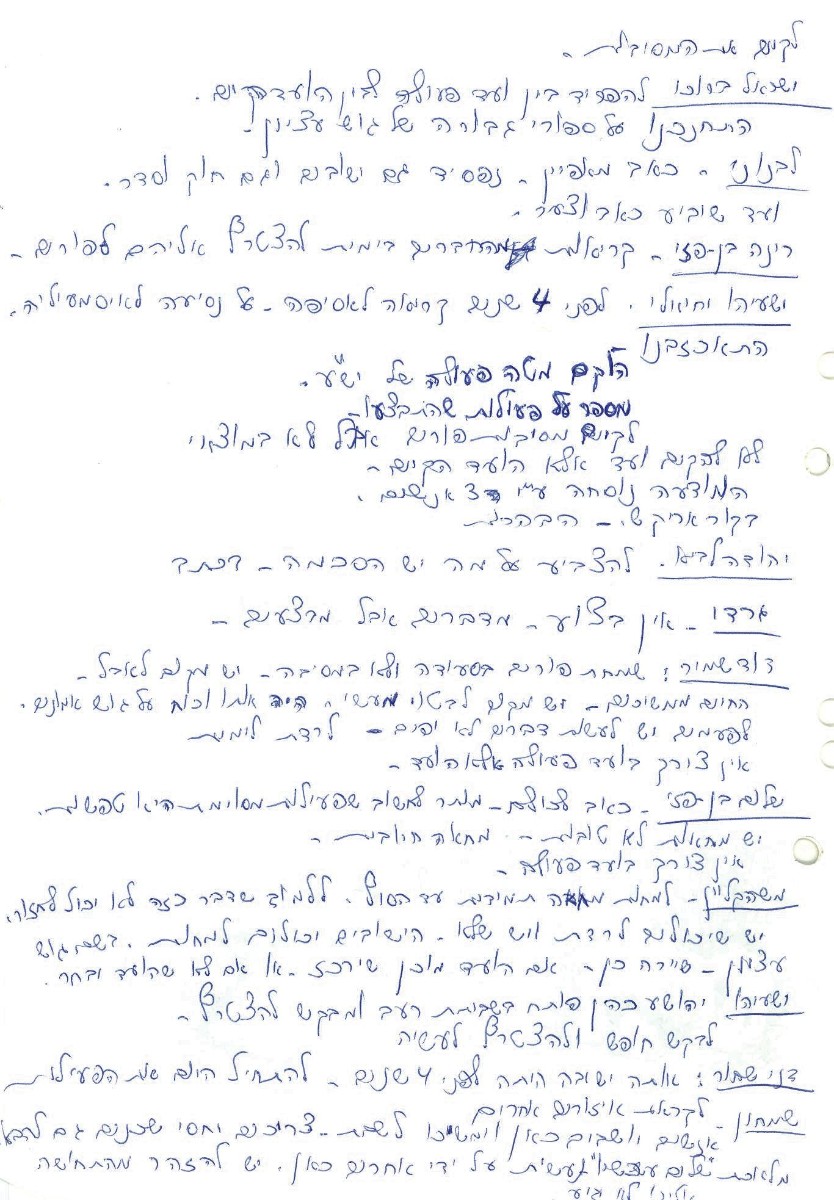 לקיים את המסיבות -
ישראל ברוכי להפריד בין ועד פעולה לבין הועד הקיים.
התחנכנו על ספורי גבורה של גוש עציון -
לבנוני - כאב מאפיין - נפסיד גם ישובים וגם חוק וסדר.
ועד שוביע כאב וצער -
רינה בן-פזי - קריאות מהחברים בימית להצטרף אליהם לפורים -
ישעיהו וחיאלי. לפני 4 שנים קראה לאסיפה - על נסיעה לאיסמעיליה.
התאכזבנו
הוקם מטה פעולה של יש"ע.
מספר על פעולות שהתבצעו -
לקיים מסיבות פורים אבל לא במוצאי
לא להקים ועד אלא הועד הקיים -
המודעה נוסחה ע"י 3 אנשים.
בקור אריק ש. - הבהרות
יהודה לביא. להצביע על מה יש הסכמה - בכתב
גרדו - אין ביצוע - מדברים אבל מרצענים -
דוד שמיר: שמחת פורים בסעודה ולא במסיבה - יש מקום לאבל -
החיים ממשיכים - יש מקום לבטוי מעשי - היה אתו וכוח על גוש אמונים.
לפעמים יש לעשות דברים לא יפים - לרדת לימית
אין צורך בועד פעולה אלא הועד -
שלום בן-פזי - כאב לכולם - מותר לחשוב שפעילות מסוימת היא טפשות.
יש מחאות לא טובות - מחאה חיובית -
אין צורך בועד פעולה -
משה - למחות מחאה תמידית עד הסוף. ללמוד שדבר כזה לא יכול לחזור.
יש שיכולים לרדת ויש שלא. הישובים יכולים למחות. בשם גוש
עציון - שיירה כן - אם הועד מוכן שירכז - או אם לא שהועד יבחר.
ישעיהו יהושע כהן פותח בשביתת רעב ומבקש להצטרף -
לבקש חופש ולהצטרף לעשיה
דני שחור: אותה ישיבה היתה לפני 4 שנים - להתחיל היום את הפעילות
לקראת איזורים אחרים
שמחון - אנשים יושבים כאן וימשיכו לשבת - צריכים יחסי שכנים גם
מלאכת "שלום עכשיו" נעשית על ידי אחרים כאן. יש להזהר מהתחושה